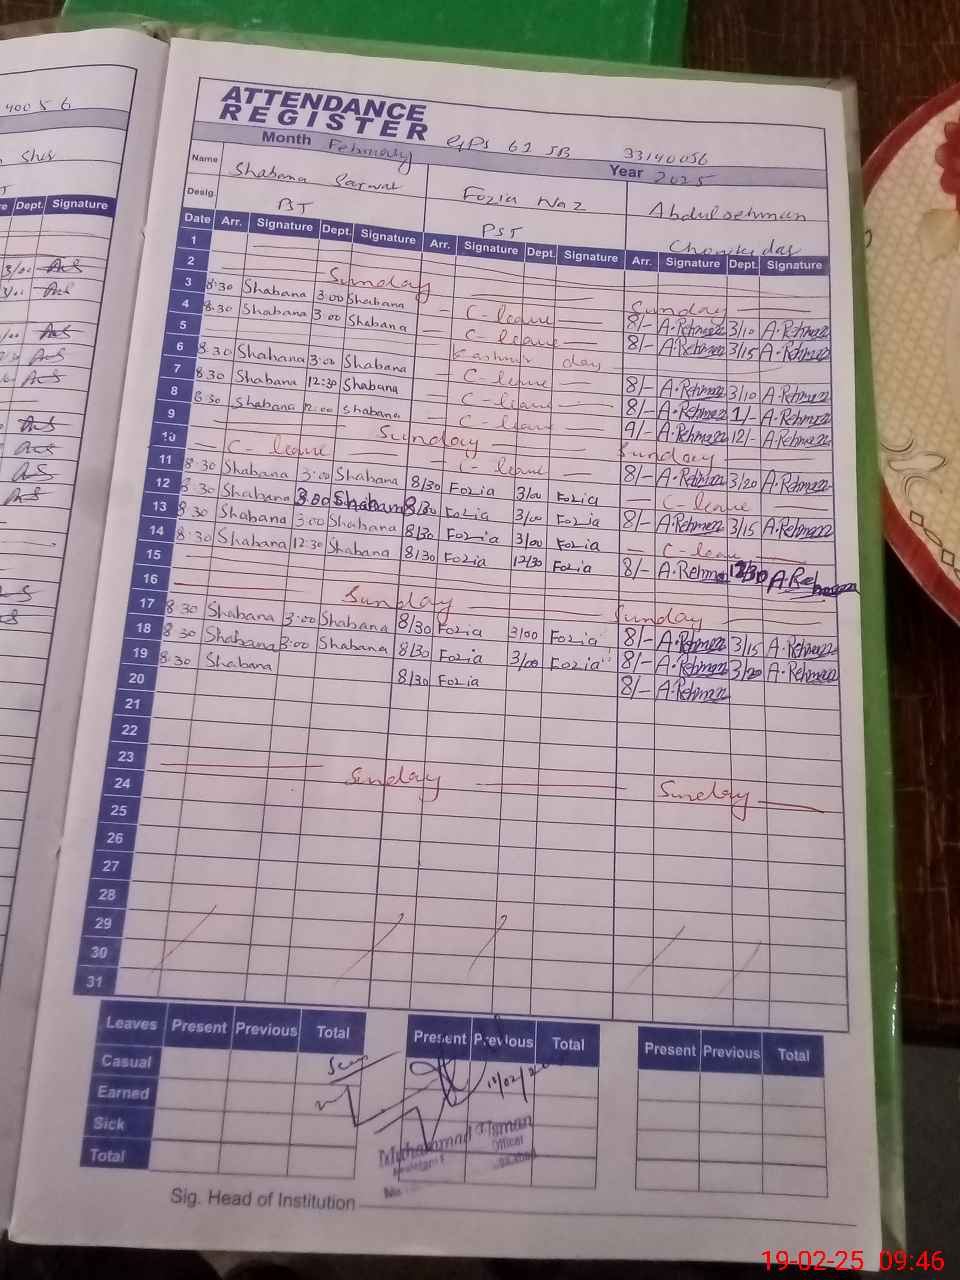 40056
Shes
Dept. Signature
ATTENDANCE
REGISTER
GPS 62 SB 33140056
Month February Year 2025
Name Shabana Sarwar Fozia Naz Abdulrehman
Desig. BT PST Chowkidar
Date Arr. Signature Dept. Signature Arr. Signature Dept. Signature Arr. Signature Dept. Signature
1
2 Sunday Sunday
3 8:30 Shabana 3:00 Shabana — C-leave — 8/- A.Rehman 3/10 A.Rehman
4 8:30 Shabana 3:00 Shabana — C-leave — 8/- A.Rehman 3/15 A.Rehman
5 Kashmir day
6 8:30 Shabana 3:00 Shabana — C-leave — 8/- A.Rehman 3/10 A.Rehman
7 8:30 Shabana 12:30 Shabana — C-leave — 8/- A.Rehman 1/- A.Rehman
8 8:30 Shabana 2:00 Shabana — C-leave — 9/- A.Rehman 12/- A.Rehman
9 Sunday Sunday
10 — C-leave — — C-leave — 8/- A.Rehman 3/20 A.Rehman
11 8:30 Shabana 3:00 Shabana 8/30 Fozia 3/00 Fozia — C-leave —
12 8:30 Shabana 3:00 Shabana 8/30 Fozia 3/00 Fozia 8/- A.Rehman 3/15 A.Rehman
13 8:30 Shabana 3:00 Shabana 8/30 Fozia 3/00 Fozia — C-leave —
14 8:30 Shabana 12:30 Shabana 8/30 Fozia 12/30 Fozia 8/- A.Rehman 12/30 A.Rehman
15
16 Sunday Sunday
17 8:30 Shabana 3:00 Shabana 8/30 Fozia 3/00 Fozia 8/- A.Rehman 3/15 A.Rehman
18 8:30 Shabana 3:00 Shabana 8/30 Fozia 3/00 Fozia 8/- A.Rehman 3/20 A.Rehman
19 8:30 Shabana 8/30 Fozia 8/- A.Rehman
20
21
22
23 Sunday Sunday
24
25
26
27
28
29
30
31
Leaves Present Previous Total Present Previous Total Present Previous Total
Casual
Earned
Sick
Total
Seen
Muhammad Usman
Officer
Sig. Head of Institution
19-02-25 09:46